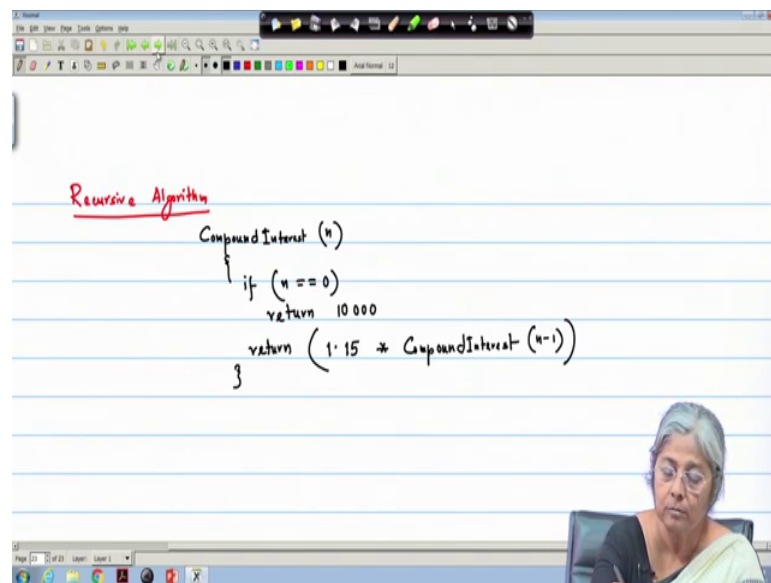 Journal
File Edit View Page Tools Options Help
Arial Normal 12
Recursive Algorithm
CompoundInterest (n)
{
if (n == 0)
return 10000
return (1.15 * CompoundInterest (n-1))
}
Page 23 of 23 Layer: Layer 1